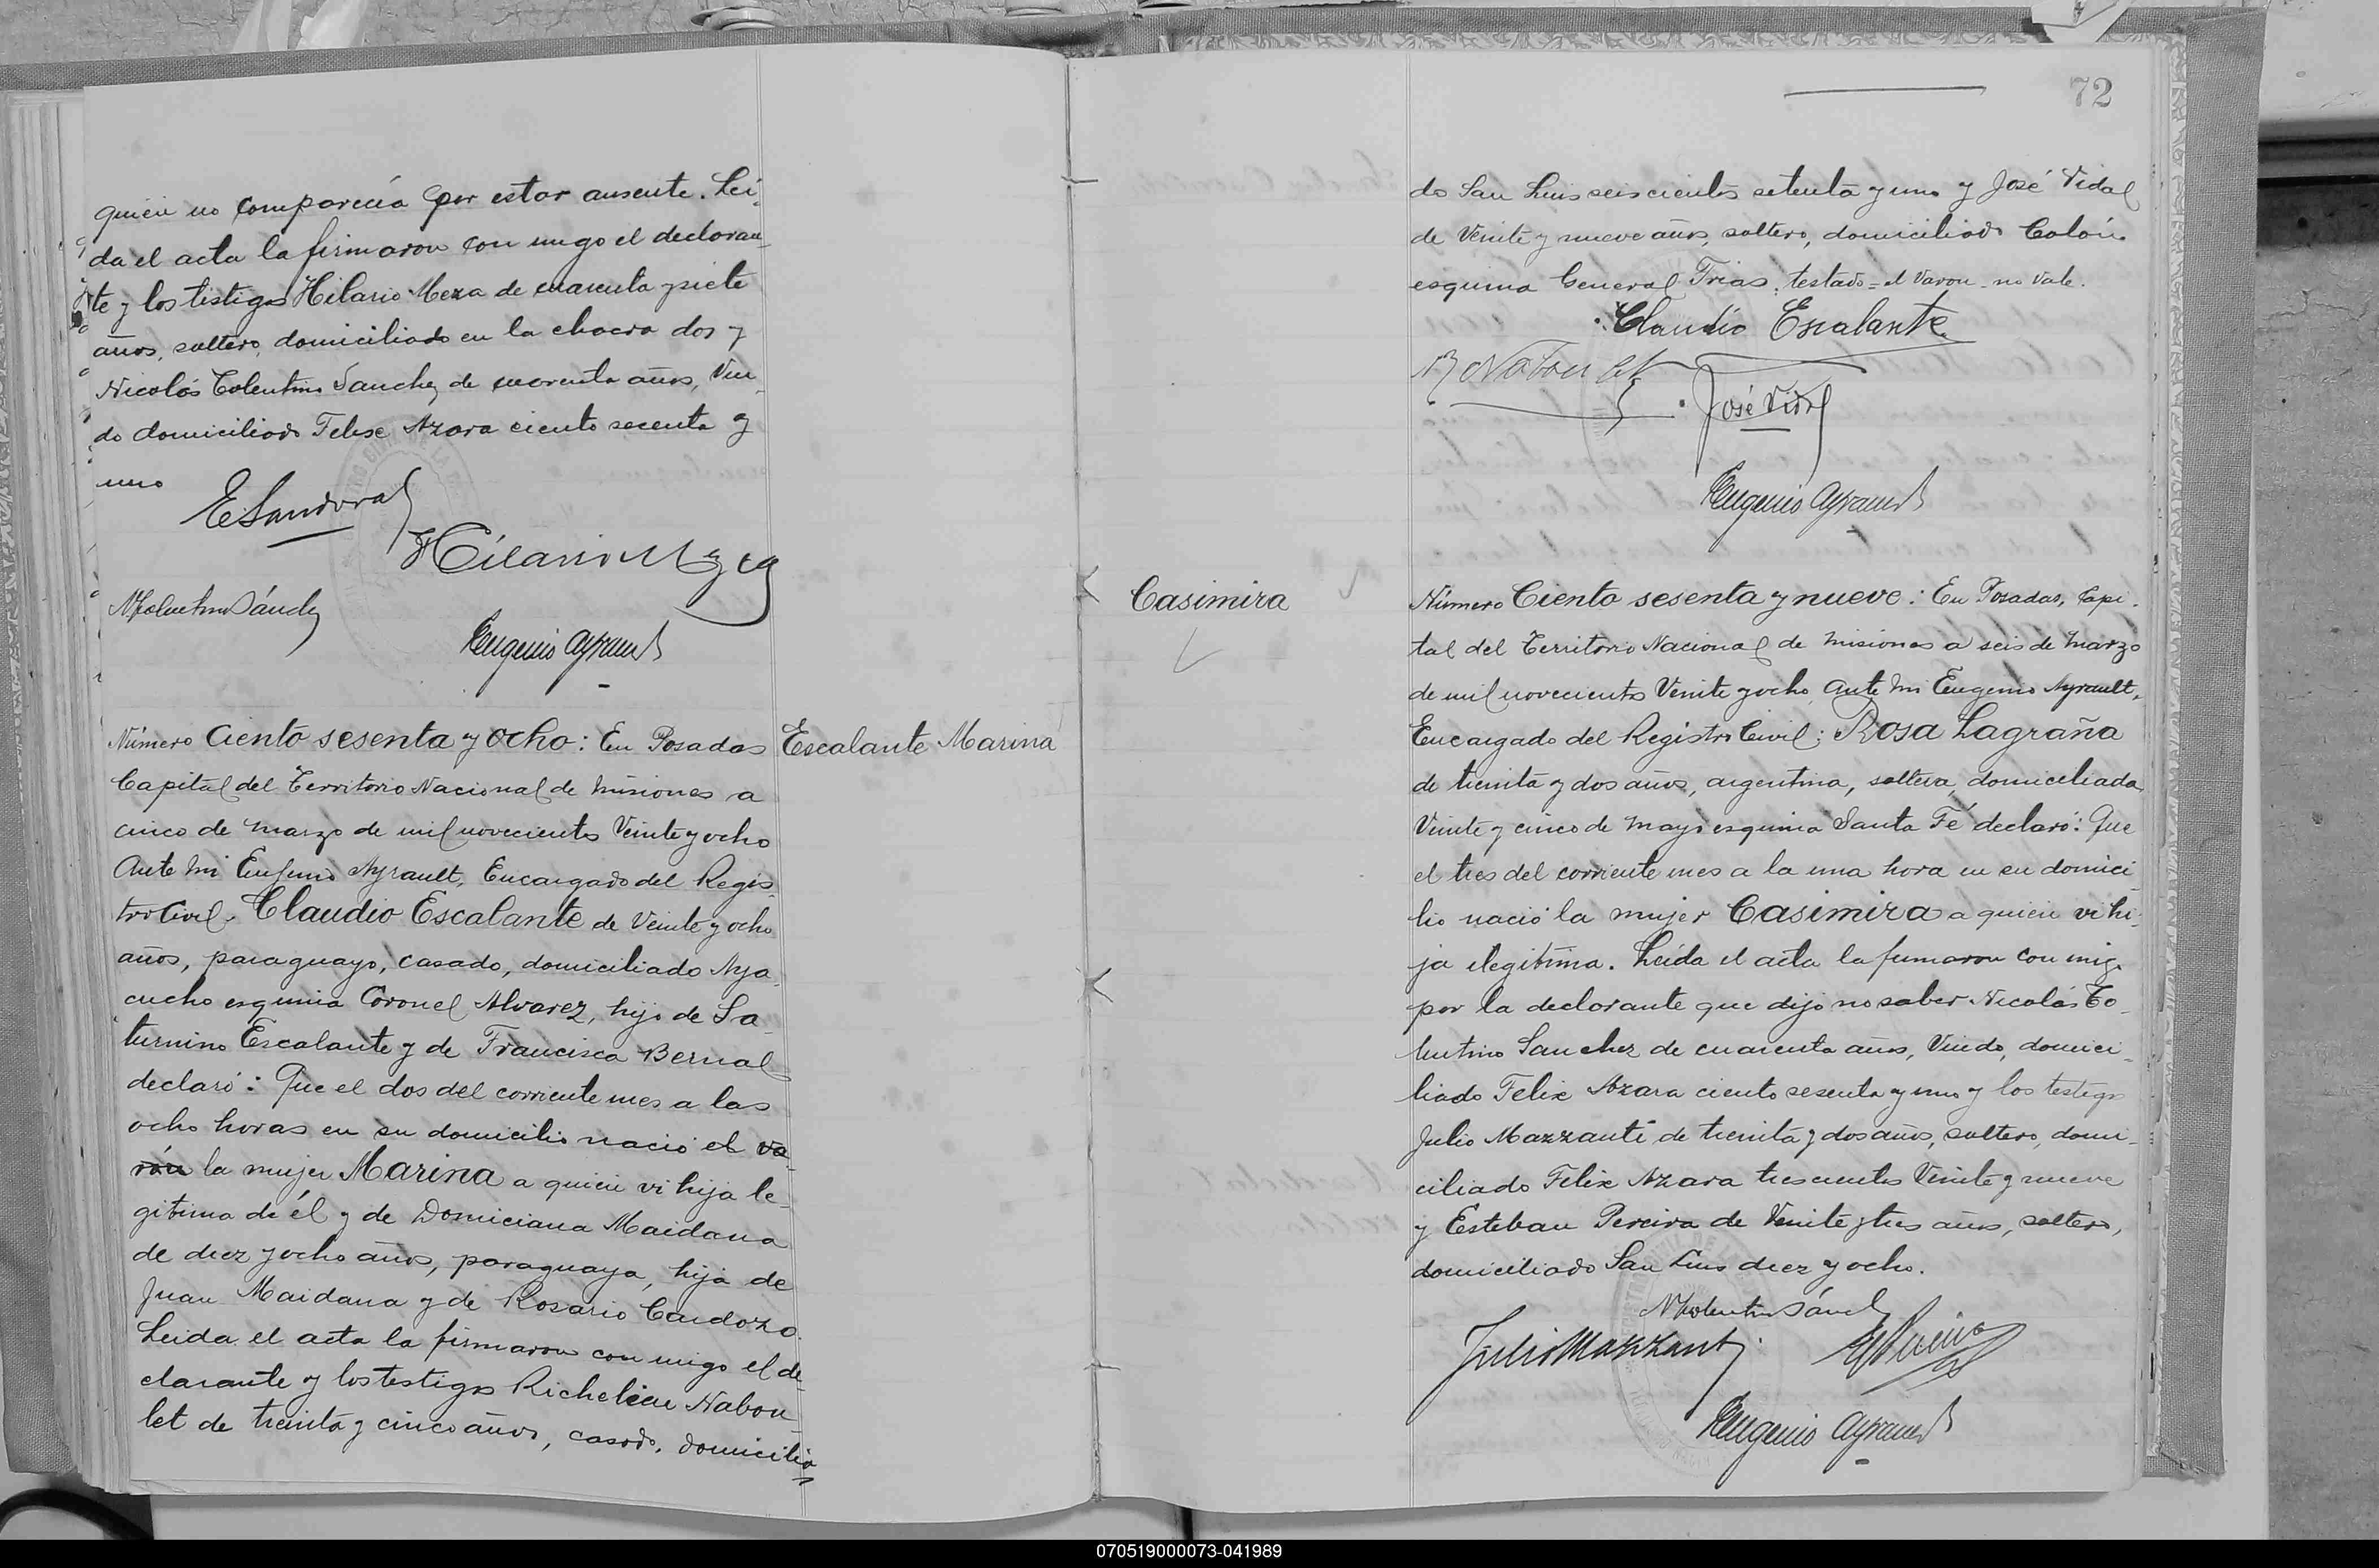 quien no comparecía por estar ausente. Leí-
da el acta la firmaron con migo el declaran-
te y los testigos Hilario Meza de cuarenta y siete
años, soltero, domiciliado en la chacra dos y
Nicolás Tolentino Sanchez de cuarenta años, Viu-
do domiciliado Felix Azara ciento secenta y
uno
E. Sandoval
Hilario Meza
NTolentino Sánchez
Eugenio Ayrault
Número Ciento sesenta y ocho: En Posadas
Capital del Territorio Nacional de Misiones a
cinco de Marzo de mil novecientos Veinte y ocho
Ante Mi Eugenio Ayrault, Encargado del Regis-
tro Civil. Claudio Escalante de Veinte y ocho
años, paraguayo, casado, domiciliado Aya-
cucho esquina Coronel Alvarez, hijo de Sa-
turnino Escalante y de Francisca Bernal
declaró: Que el dos del corriente mes a las
ocho horas en su domicilio nació el va-
rón la mujer Marina a quien vi hija le-
gitima de él y de Domiciana Maidana
de diez y ocho años, paraguaya, hija de
Juan Maidana y de Rosario Cardozo.
Leida el acta la firmaron con migo el de-
clarante y los testigos Richelieu Nabou-
let de treinta y cinco años, casado, domicilia-
Escalante Marina
72
do San Luis seiscientos setenta y uno y José Vidal
de Veinte y nueve años, soltero, domiciliado Colón
esquina General Frias. testado = el Varon - no Vale.
Claudio Escalante
R Naboulet
José Vidal
Eugenio Ayrault
Casimira
Número Ciento sesenta y nueve: En Posadas, Capi-
tal del Territorio Nacional de Misiones a seis de Marzo
de mil novecientos Veinte y ocho, Ante Mi Eugenio Ayrault,
Encargado del Registro Civil: Rosa Lagraña
de treinta y dos años, argentina, soltera, domiciliada
Veinte y cinco de Mayo esquina Santa Fé declaró: Que
el tres del corriente mes a la una hora en su domici
lio nació la mujer Casimira a quien vi hi-
ja ilegitima. Leída el acta la firmaron con migo
por la declarante que dijo no saber Nicolás To-
lentino Sanchez de cuarenta años, Viudo, domici-
liado Felix Azara ciento sesenta y uno y los testigos
Julio Mazzanti de treinta y dos años, soltero, domi-
ciliado Felix Azara trescientos Veinte y nueve
y Esteban Pereira de Veinte y tres años, soltero,
domiciliado San Luis diez y ocho.
NTolentino Sánchez
Julio Mazzanti
E Pereira
Eugenio Ayrault
070519000073-041989